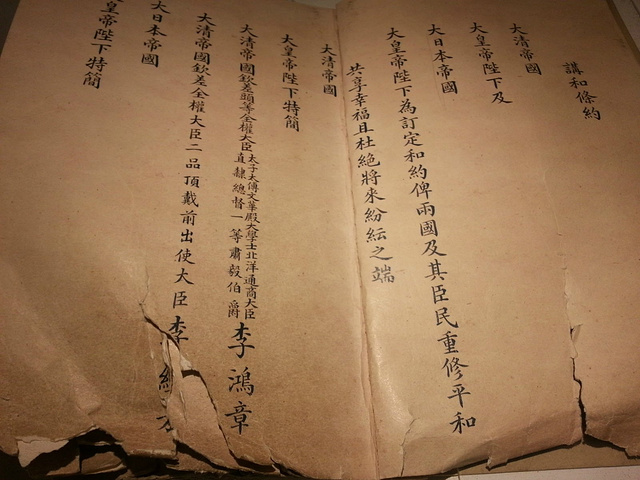 講和條約
大清帝國
大皇帝陛下及
大日本帝國
大皇帝陛下為訂定和約俾兩國及其臣民重修平和
共享幸福且杜絕將來紛紜之端
大清帝國
大皇帝陛下特簡
大清帝國欽差頭等全權大臣太子太傅文華殿大學士北洋通商大臣直隸總督一等肅毅伯爵李鴻章
大清帝國欽差全權大臣二品頂戴前出使大臣李經方
大日本帝國
大皇帝陛下特簡